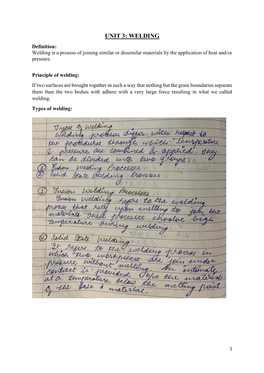 UNIT 3: WELDING
Definition:
Welding is a process of joining similar or dissimilar materials by the application of heat and/or
pressure.
Principle of welding:
If two surfaces are brought together in such a way that nothing but the grain boundaries separate
them then the two bodies with adhere with a very large force resulting in what we called
welding.
Types of welding:
Types of Welding
Welding processes differ with respect to
the procedures through which temperature
& pressure are combined & applied. They
can be divided into two groups:-
① Fusion welding Processes
② Solid State Welding Processes
① Fusion Welding Processes
Fusion Welding refers to the welding
process that rely upon melting to join the
materials. These processes involve high
temperature during welding.
② Solid State Welding
It refers to the welding process in
which two workpieces are join under
pressure without melting. An intimate
contact is provided b/w the materials
at a temperature below the melting point
of the base material.
1